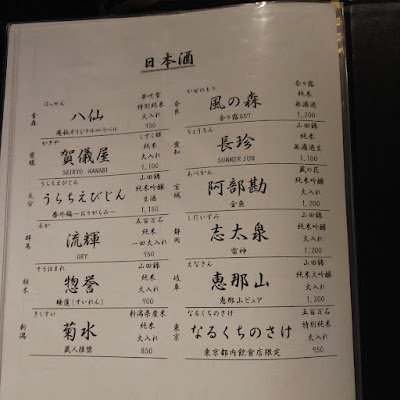 日本酒
はっせん
青森
八仙
華吹雪
特別純米
火入れ
庵狐オリジナルラベル
950
かぎや
愛媛
賀儀屋
しずく媛
純米
火入れ
SEIRYO HANABI
1,100
うらちえびじん
大分
うらちえびじん
山田錦
純米吟醸
生酒
番外編～おりがらみ～
1,150
るか
群馬
流輝
五百万石
純米
一回火入れ
DRY
950
そうほまれ
栃木
惣誉
山田錦
純米
火入れ
睡蓮(すいれん)
900
きくすい
新潟
菊水
新潟県産米
純米
火入れ
蔵人推奨
850
かぜのもり
奈良
風の森
奈々露
純米
無濾過
奈々露657
1,200
ちょうちん
愛知
長珍
山田錦
純米
無濾過生
SUMMER JUN
1,100
あべかん
宮城
阿部勘
蔵の花
純米吟醸
火入れ
金魚
1,200
しだいずみ
静岡
志太泉
山田錦
純米吟醸
火入れ
雷神
1,200
えなさん
岐阜
恵那山
山田錦
純米大吟醸
火入れ
恵那山ピュア
1,300
なるくちのさけ
東京
なるくちのさけ
五百万石
特別純米
火入れ
東京都内飲食店限定
950